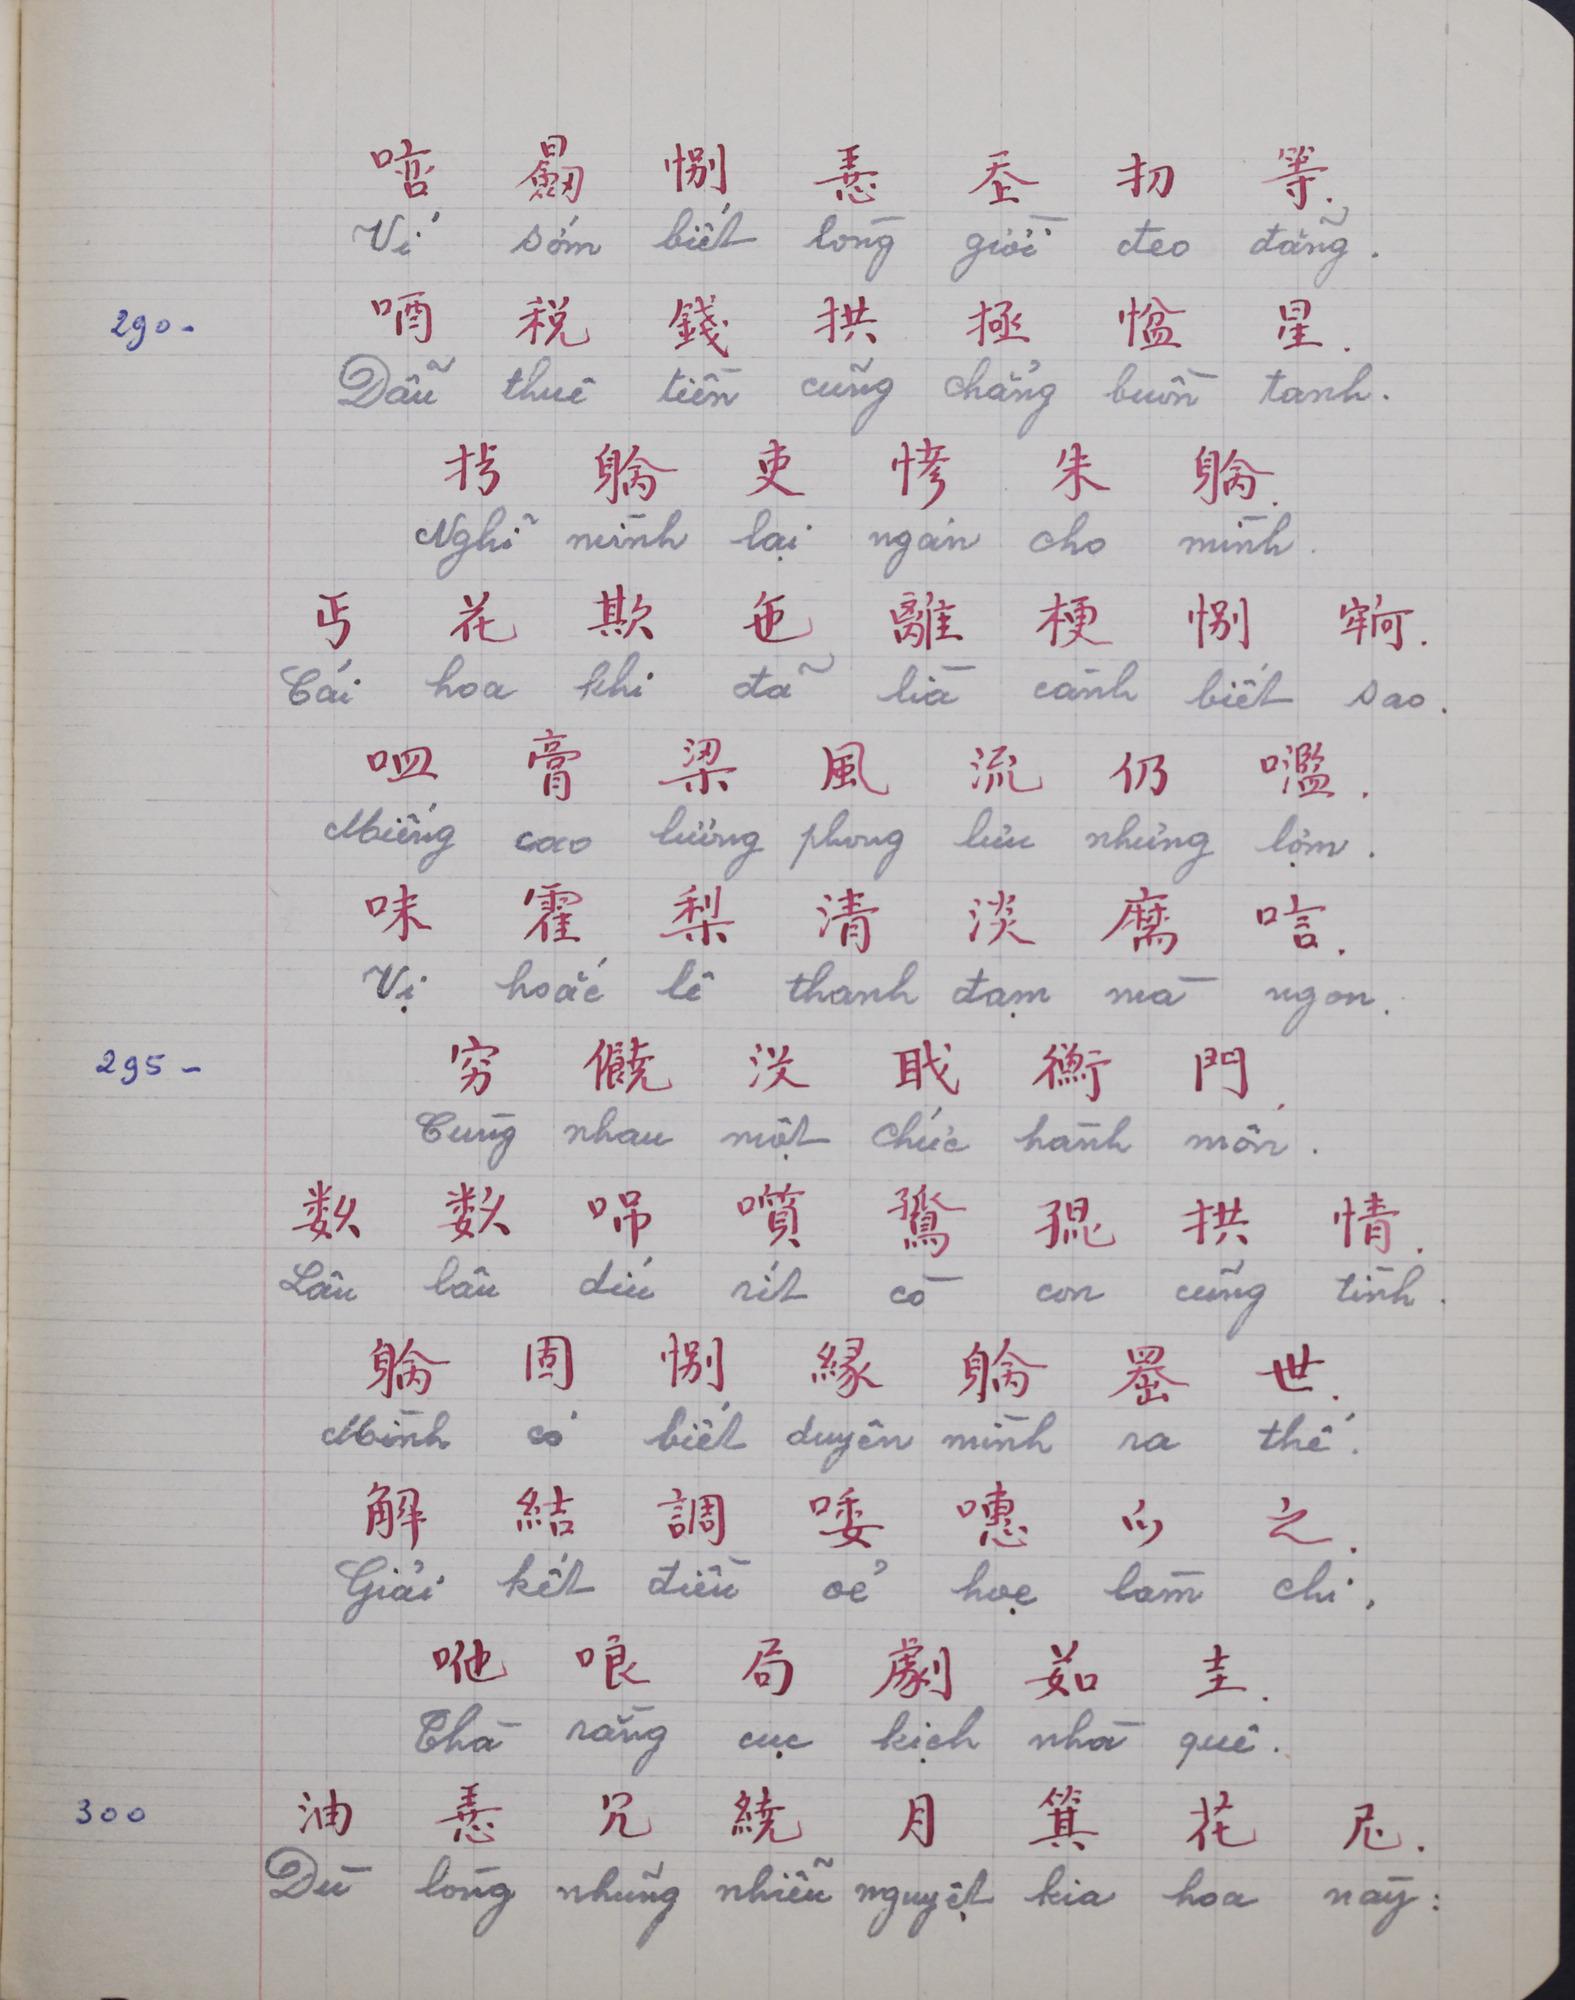 噾 𣋽 別 𢚸 𡗶 扨 等.
Ví sớm biết lòng giời đeo đẳng.
290- 唒 税 錢 拱 拯 㥪 星.
Dẫu thuê tiền cũng chẳng buồn tanh.
𢪀 𨉟 吏 㤓 朱 𨉟.
Nghĩ mình lại ngán cho mình.
丐 花 欺 㐌 離 梗 別 牢.
Cái hoa khi đã lìa cành biết sao.
𠰳 膏 梁 風 流 仍 嚂.
Miếng cao lương phong lưu nhưng lợm.
味 霍 梨 清 淡 𦓡 唁.
Vị hoắc lê thanh đạm mà ngon.
295- 穷 饒 沒 戠 衡 門.
Cùng nhau một chức hành môn.
数 数 吊 噴 鵉 𡥵 拱 情.
Lâu lâu díu rít cò con cũng tình.
𨉟 固 別 緣 𨉟 𦋦 世.
Mình có biết duyên mình ra thế.
解 結 調 唩 嘒 𫜵 之.
Giải kết điều oẻ hoẹ làm chi.
咃 哴 局 劇 茹 圭.
Thà rằng cục kịch nhà quê.
300 油 𢚸 冗 繞 月 箕 花 尼.
Dù lòng nhũng nhiễu nguyệt kia hoa này: